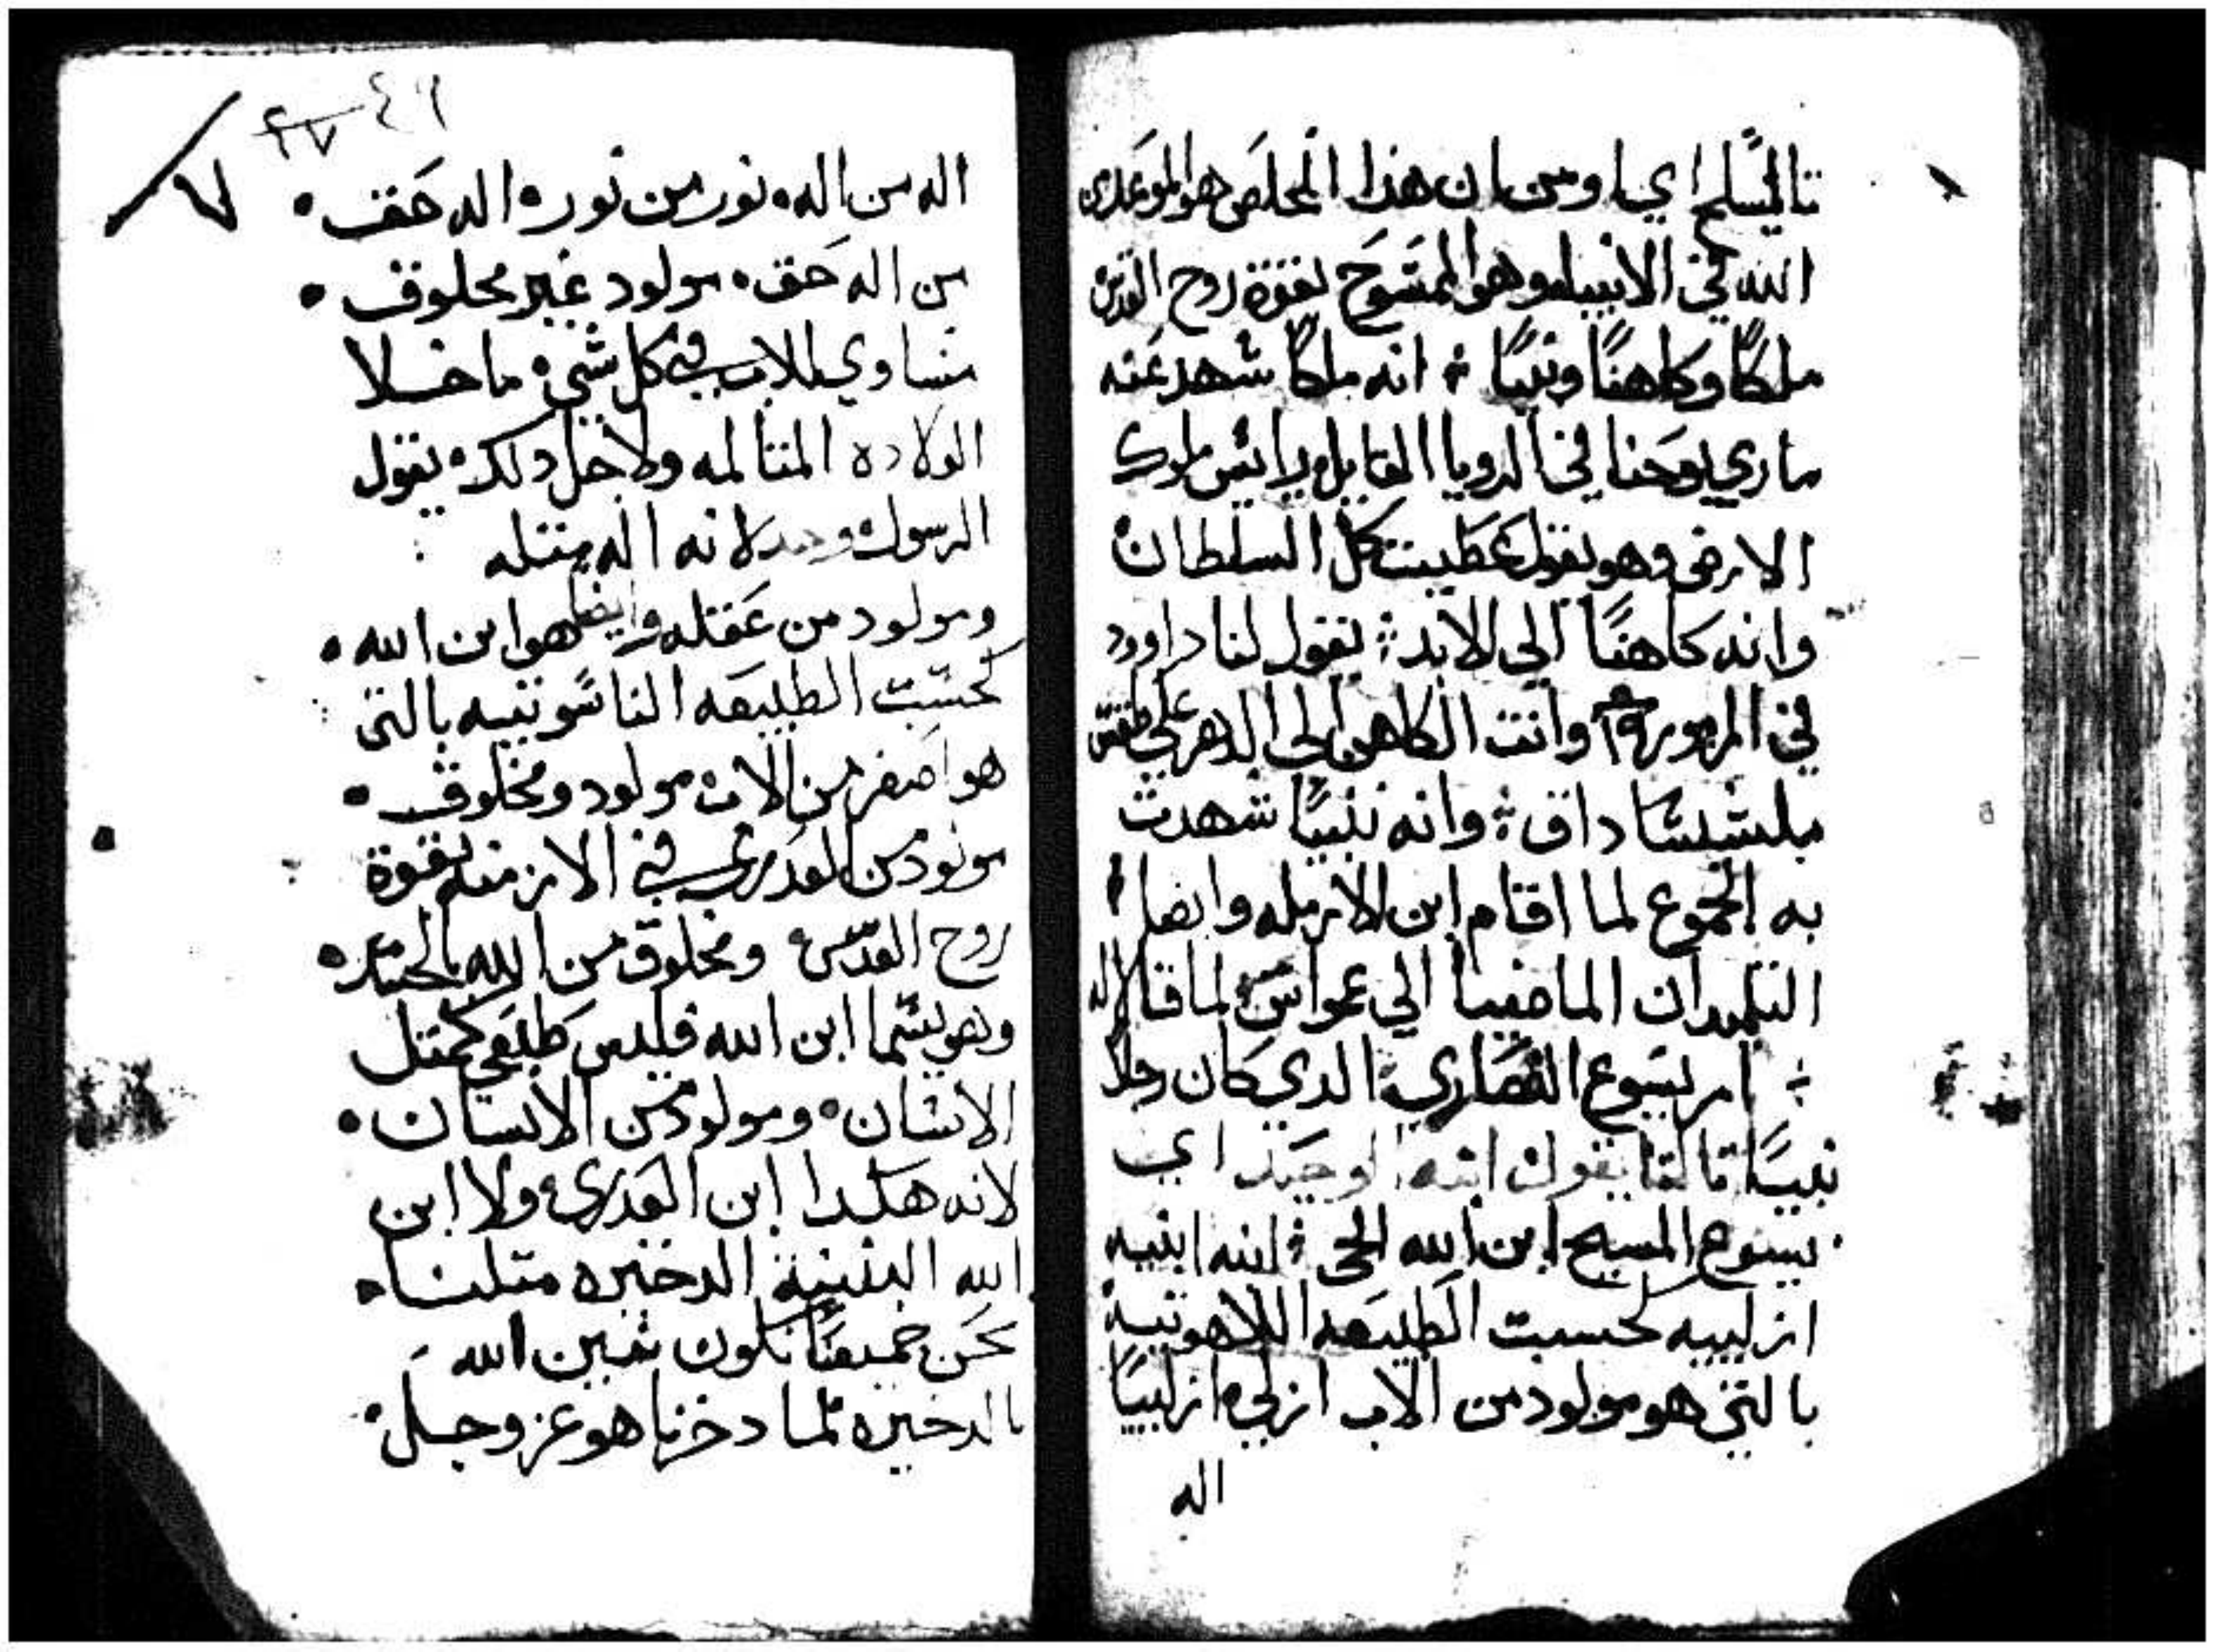 تاليسلم اي اومن ان هذا المخلص هوالموعد من
الله في الانبياء وهوالممسوح بقوة روح القدس
ملكًا وكاهنًا ونبيًا ؛ انه ملكًا شهد عنه
ماري يوحنا في الرويا القايل برايس ملوك
الارض وهو يقول عطيت كل السلطان
وانه كاهنًا الي الابد ؛ يقول لنا داوود
في المزمور ١٠٩ وانت الكاهن الي الدهر علي طقس
ملشيساداق ؛ وانه نبيًا شهدت
به الجموع لما اقام ابن الارمله وايضا
التلميدان الماضيا الي عمواس لما قالا له
؛ امر يسوع النصاري الدي كان رجلا
نبيًا تالتا يقول ابنه الوحيد اي
يسوع المسيح ابن الله الحي ؛ ابنه ابنيه
ازلييه بحسبت الطبيعه اللاهوتية
بالتي هو مولود من الاب ازلي ازلييا
اله
٤٦
٢٧
٧
اله من اله نور من نور اله حق
من اله حق مولود غير مخلوق
مساوي للاب في كل شي ما خلا
الولاده المتالمه ولاجل دلك يقول
الرسول وحد لانه اله متله
ومولود من عقله وايضا هوابن الله
بحسبت الطبيعه الناسوتيه بالتي
هو اصغر من الاب مولود ومخلوق
مولود من العدري في الازمنه بقوة
روح القدس ومخلوق من الله بالجسد
وهو يسما ابن الله فليس طبعي كمتل
الانسان ومولود من الانسان
لانه هكدا ابن العدري ولا ابن
الله البنية الدخيره متلنا
نحن جميعًا نكون بنين الله
بالدخيره لما دخرنا هو عز وجل